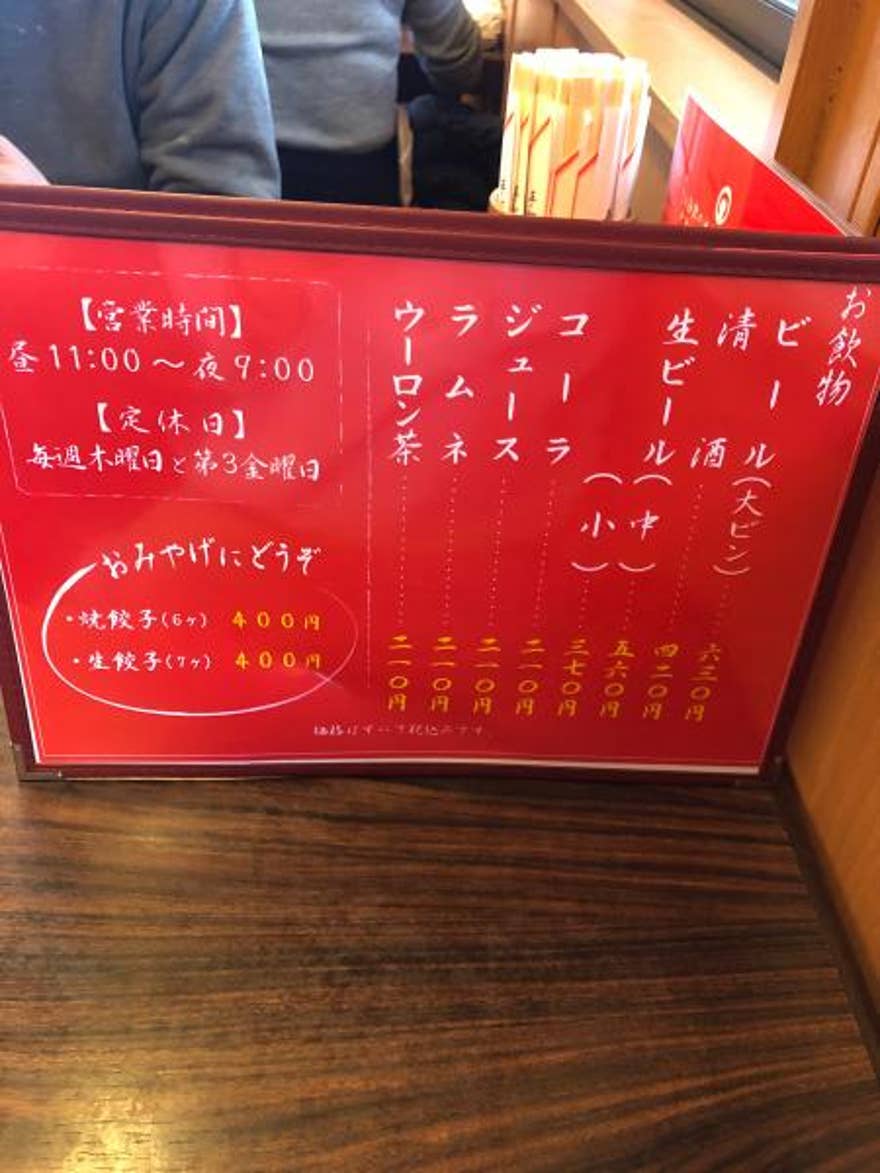 お飲物
ビール(大ビン)……六三〇円
清酒……四二〇円
生ビール(中)……五六〇円
(小)……三七〇円
コーラ……二一〇円
ジュース……二一〇円
ラムネ……二一〇円
ウーロン茶……二一〇円
【営業時間】
昼11:00～夜9:00
【定休日】
毎週木曜日と第3金曜日
おみやげにどうぞ
・焼餃子(6ヶ) 400円
・生餃子(7ヶ) 400円
価格はすべて税込みです。